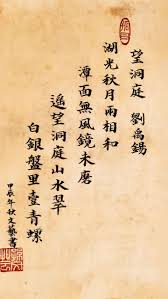 望洞庭 劉禹錫
湖光秋月兩相和
潭面無風鏡未磨
遙望洞庭山水翠
白銀盤里壹青螺
甲辰年秋文藝書